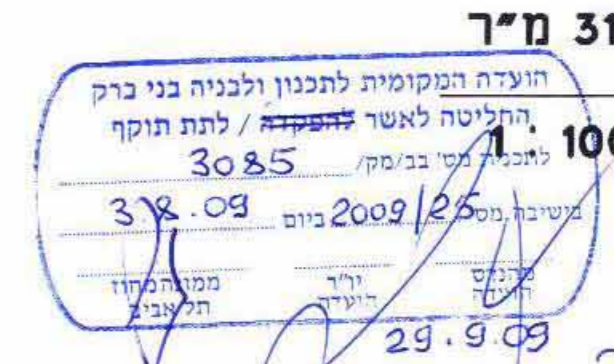 31 מ״ר
הועדה המקומית לתכנון ולבניה בני ברק
החליטה לאשר להפקדה / לתת תוקף
1 : 100
לתכנית מס' בב/מק/ 3085
בישיבה מס' 2009/25 ביום 3.8.09
מהנדס הועדה יו״ר הועדה ממונה מחוז תל אביב
29.9.09